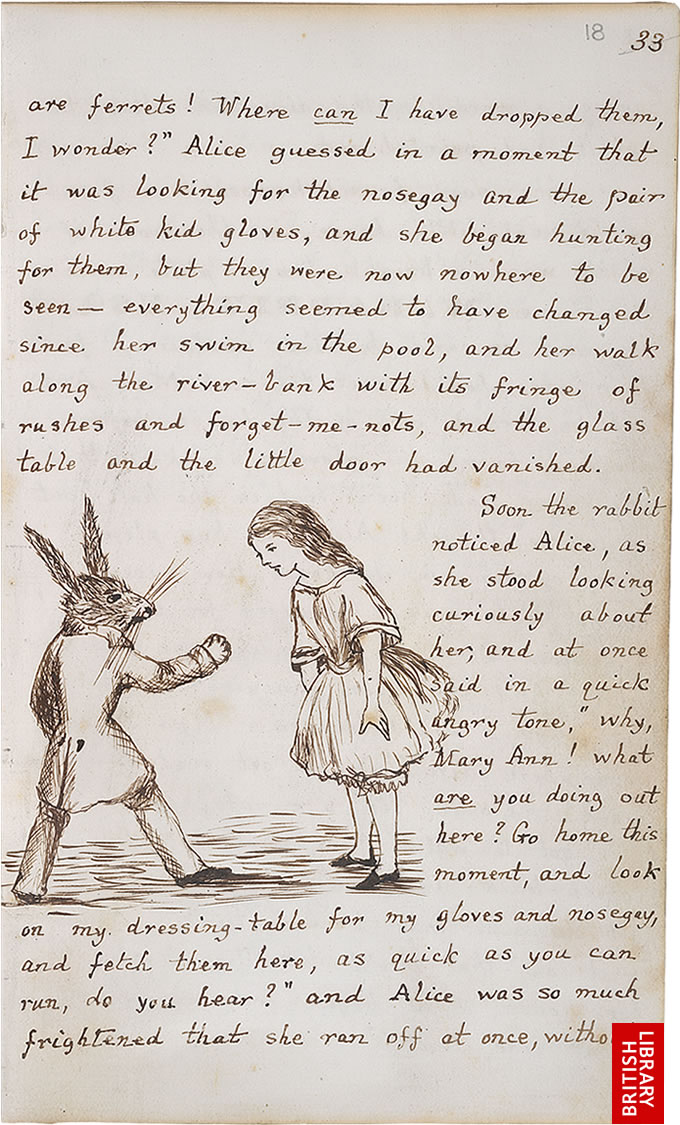 18 33
are ferrets! Where can I have dropped them,
I wonder?" Alice guessed in a moment that
it was looking for the nosegay and the pair
of white kid gloves, and she began hunting
for them, but they were now nowhere to be
seen — everything seemed to have changed
since her swim in the pool, and her walk
along the river-bank with its fringe of
rushes and forget-me-nots, and the glass
table and the little door had vanished.
Soon the rabbit
noticed Alice, as
she stood looking
curiously about
her, and at once
said in a quick
angry tone, "why,
Mary Ann! what
are you doing out
here? Go home this
moment, and look
on my dressing-table for my gloves and nosegay,
and fetch them here, as quick as you can
run, do you hear?" and Alice was so much
frightened that she ran off at once,
BRITISH
LIBRARY